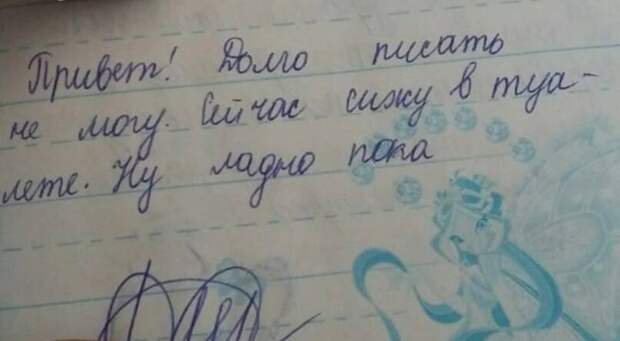 Привет! Долго писать
не могу. Сейчас сижу в туа-
лете. Ну ладно пока